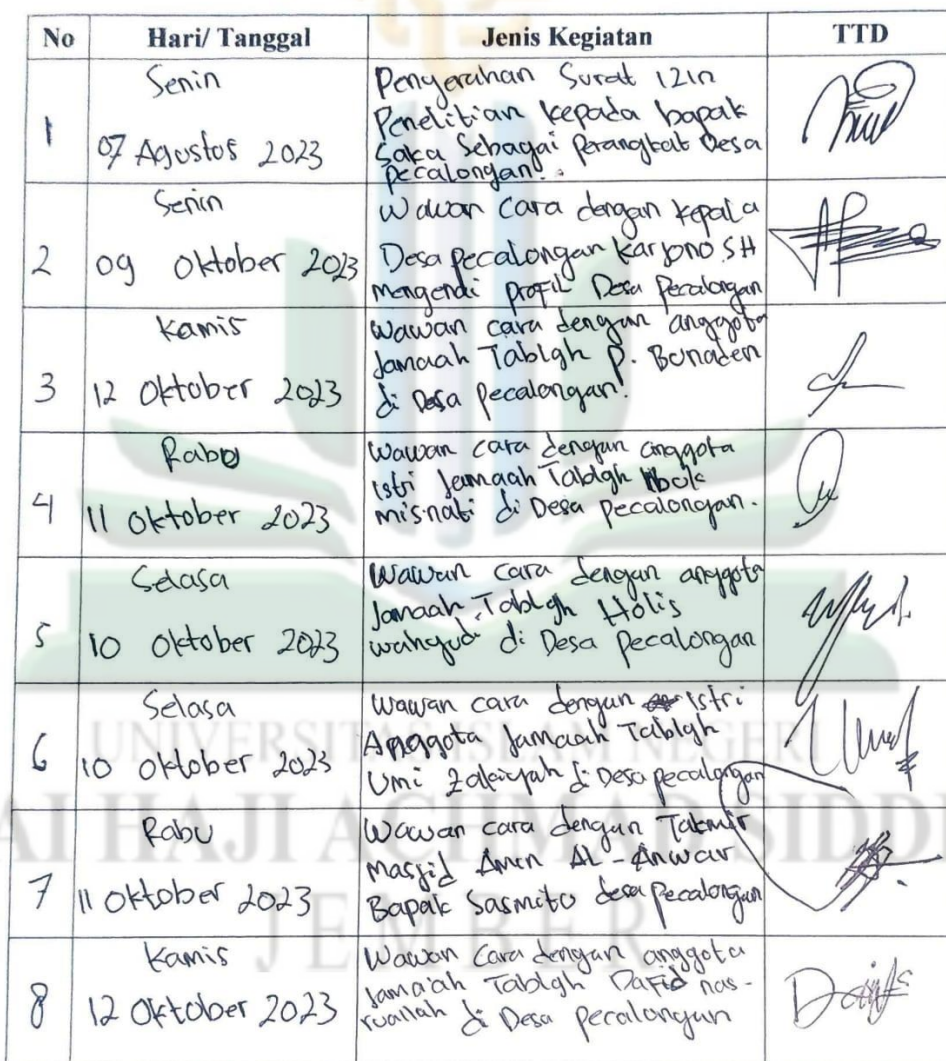 No Hari/ Tanggal Jenis Kegiatan TTD
1
Senin
07 Agustus 2023
Penyerahan Surat izin
Penelitian kepada bapak
Saka Sebagai Perangkat Desa
pecalongan.
2
Senin
09 Oktober 2023
Wawan cara dengan kepala
Desa pecalongan Karyono SH
mengenai profil Desa Pecalongan
3
Kamis
12 Oktober 2023
wawan cara dengan anggota
Jamaah Tabligh P. Bunaden
di Desa pecalongan.
4
Rabu
11 Oktober 2023
Wawan cara dengan anggota
istri Jamaah Tabligh Ibuk
misnati di Desa pecalongan.
5
Selasa
10 Oktober 2023
Wawan cara dengan anggota
Jamaah Tabligh Holis
wahyudi di Desa pecalongan
6
Selasa
10 Oktober 2023
Wawan cara dengan istri
Anggota Jamaah Tabligh
Umi Zakiyah di Desa pecalongan
7
Rabu
11 Oktober 2023
Wawan cara dengan Takmir
Masjid Amin AL-Anwar
Bapak Sasmito desa pecalongan
8
Kamis
12 Oktober 2023
Wawan cara dengan anggota
Jamaiah Tabligh Dafid nas-
ruallah di Desa pecalongan
UNIVERSITAS ISLAM NEGERI
AI HAJI ACHMAD SIDDI
JEMBER